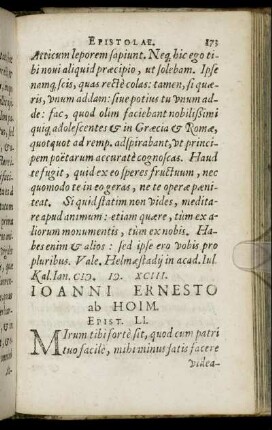 EPISTOLAE. 173
Atticum leporem sapiunt. Neq; hic ego ti-
bi novi aliquid præcipio, ut solebam. Ipse
namq; scis, quas rectè colas: tamen, si quæ-
ris, unum addam: sive potius tu unum ad-
de: fac, quod olim faciebant nobilissimi
quiq; adolescentes & in Græcia & Romæ,
quotquot ad remp. adspirabant, ut princi-
pem poëtarum accuratè cognoscas. Haud
te fugit, quid ex eo speres fructuum, nec
quomodo te in eo geras, ne te operæ pœni-
teat. Si quid statim non vides, medita-
re apud animum: etiam quære, tùm ex a-
liorum monumentis, tùm ex nobis. Ha-
bes enim & alios: sed ipse ero vobis pro
pluribus. Vale. Helmæstadij in acad. Iul.
Kal. Ian. CIↃ. IↃ. XCIII.
IOANNI ERNESTO
ab HOIM.
EPIST. LI.
MIrum tibi fortè sit, quod cum patri
tuo facilè, mihi minus satis facere
videa-